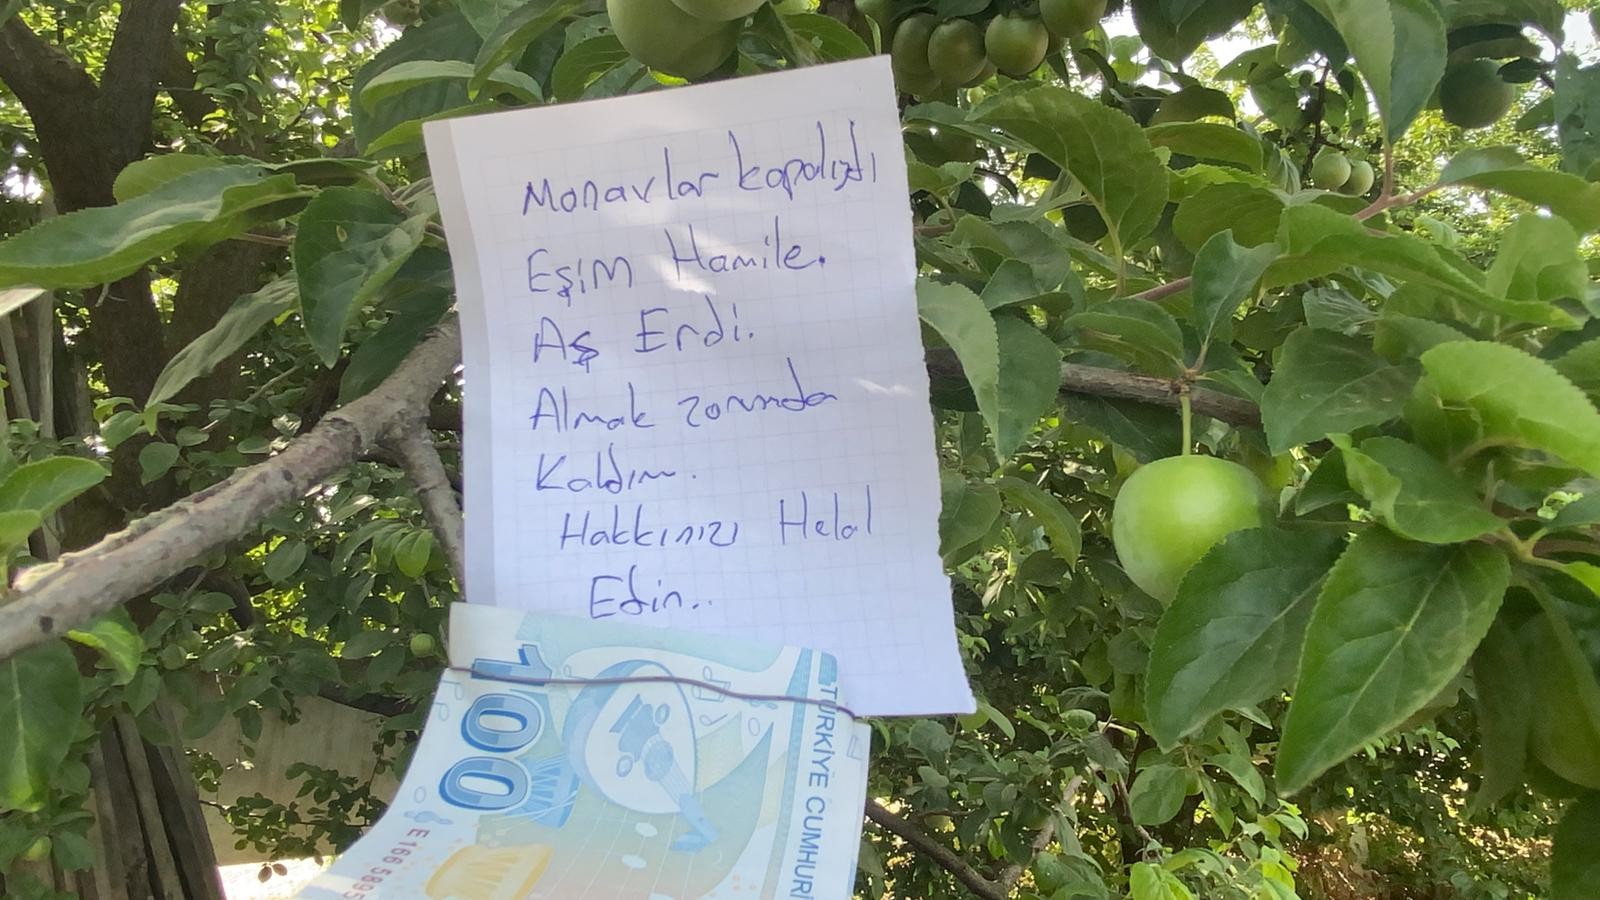 Manavlar kapalıydı
Eşim Hamile.
Aş Erdi.
Almak zorunda
Kaldım.
Hakkınızı Helal
Edin..
100
TÜRKİYE CUMHURİ
E1665895